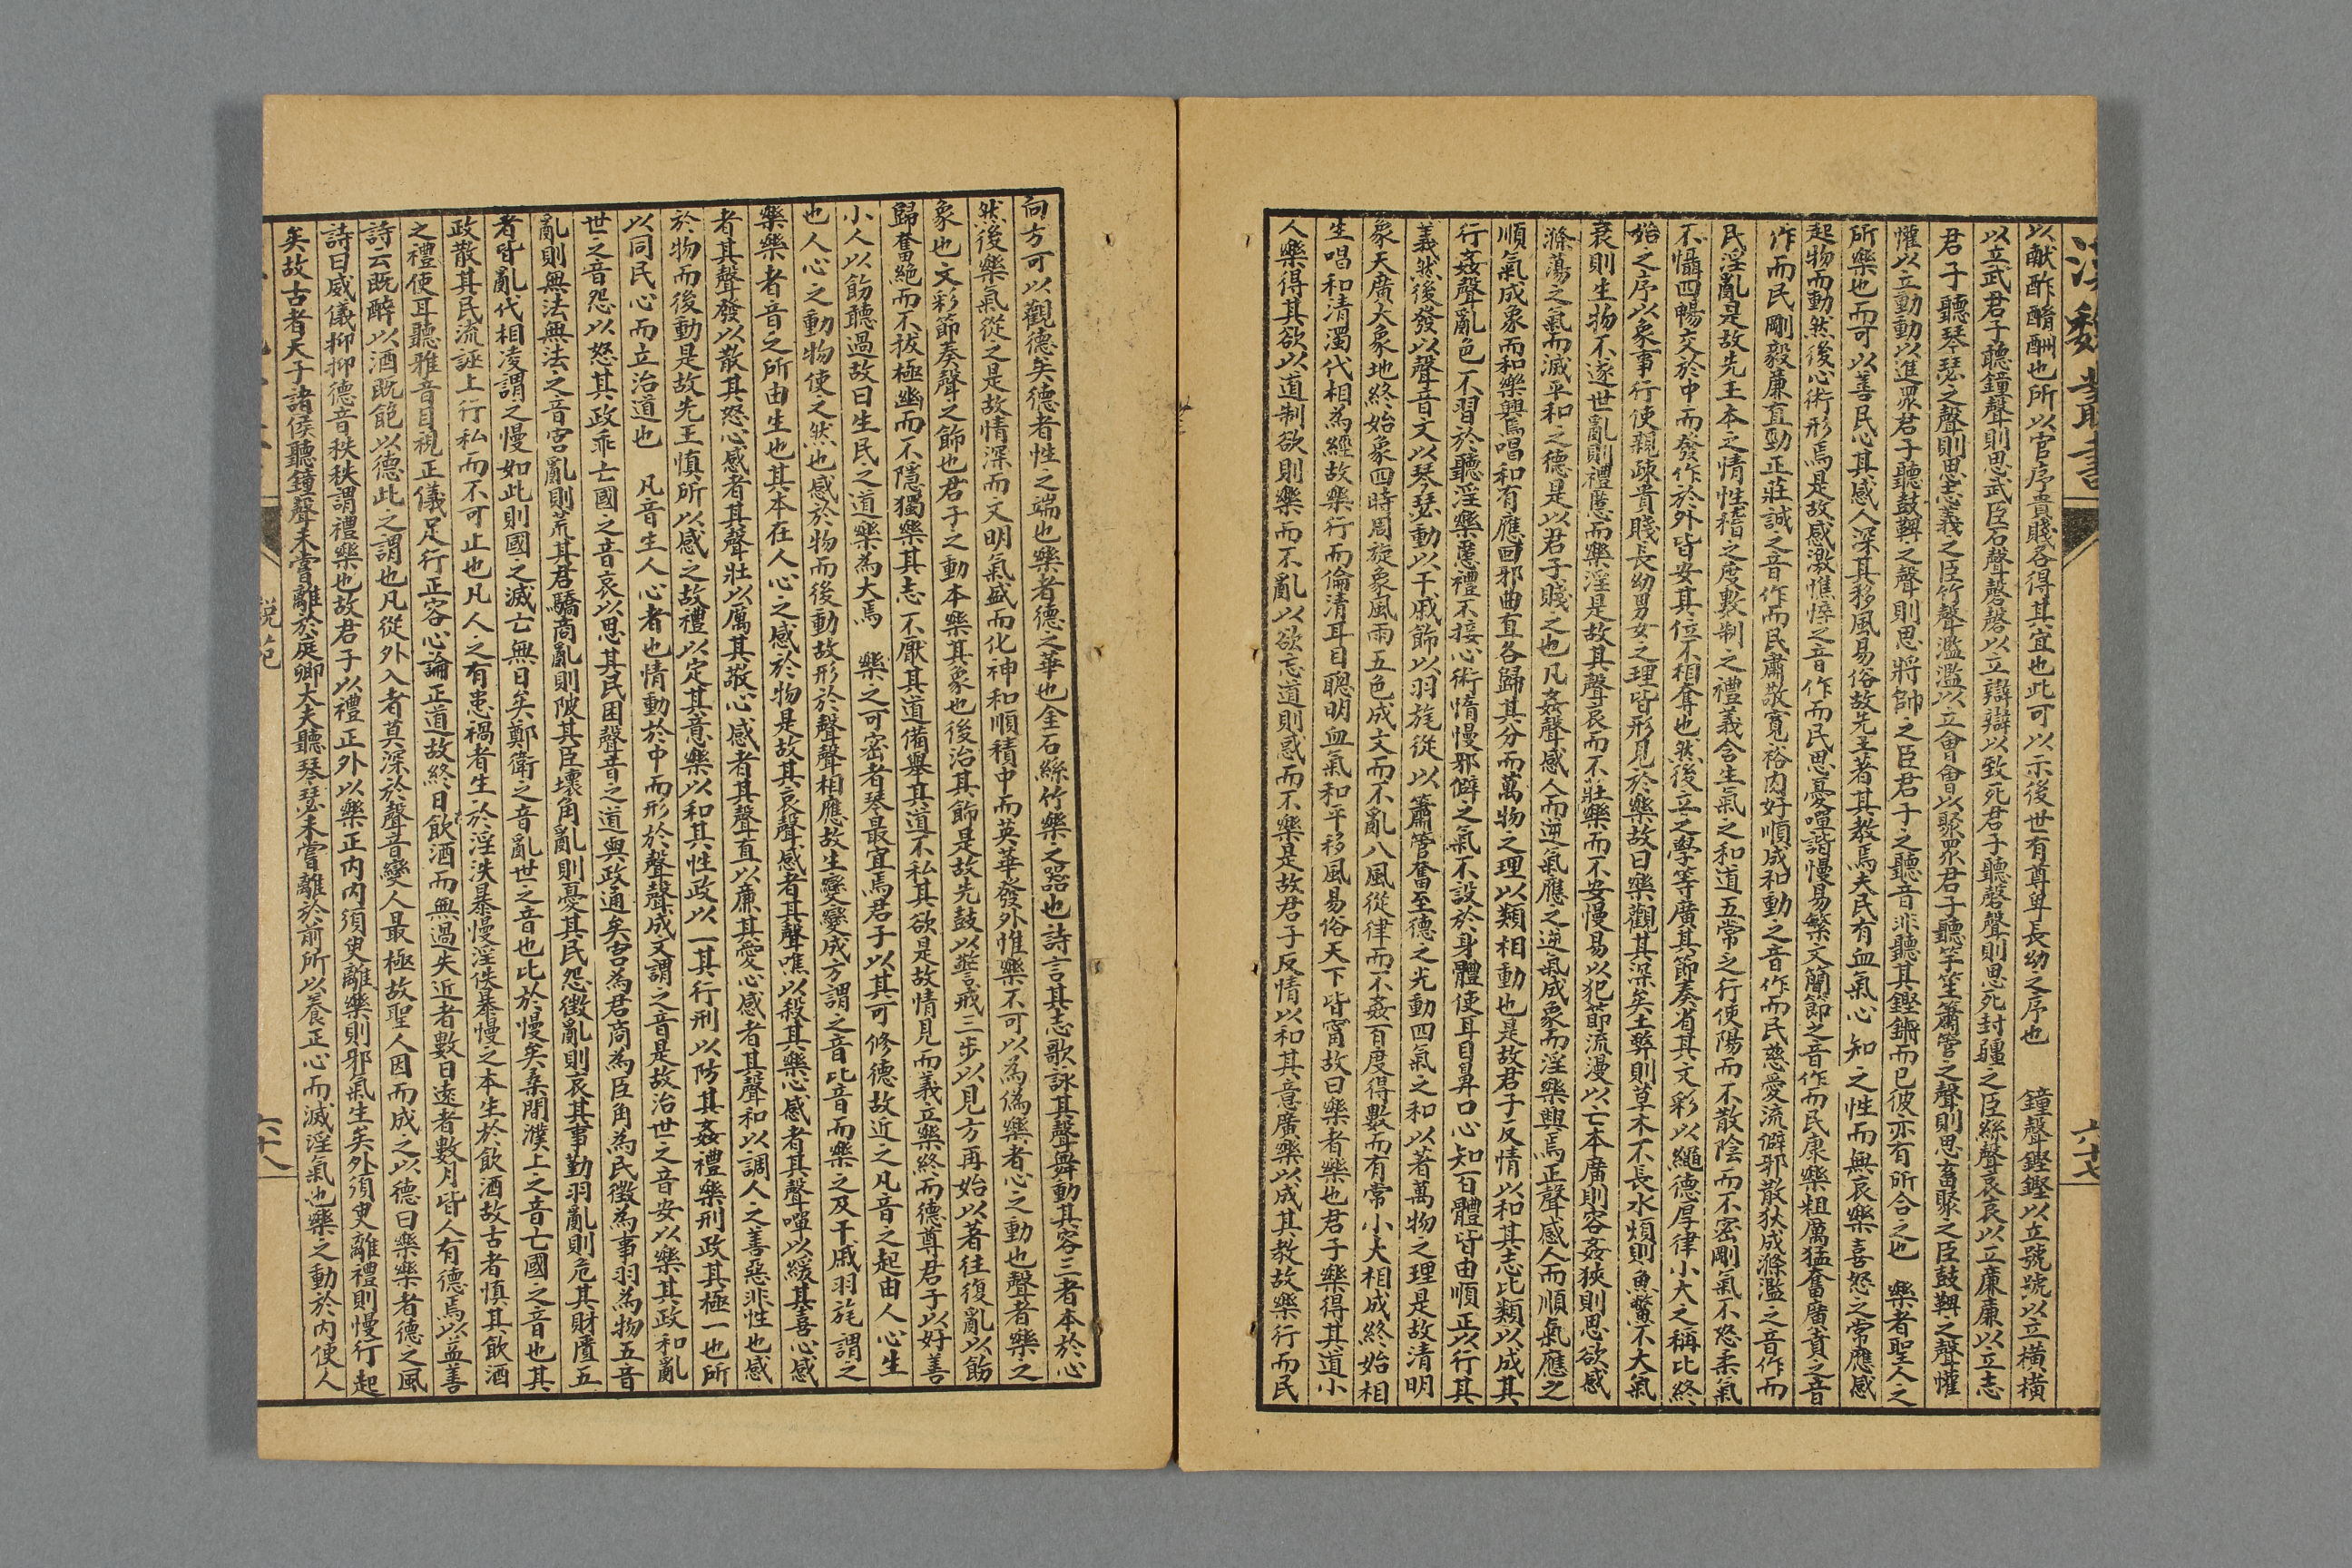 以献酢酳酬也所以官序貴賤各得其宜也此可以示後世有尊卑長幼之序也　鐘聲鏗鏗以立號號以立横横
以立武君子聽鐘聲則思武臣石聲磬磬以立辯辯以致死君子聽磬聲則思死封疆之臣絲聲哀哀以立廉廉以立志
君子聽琴瑟之聲則思志義之臣竹聲濫濫以立會會以聚眾君子聽竽笙簫管之聲則思畜聚之臣鼓鞞之聲懽
懽以立動動以進眾君子聽鼓鞞之聲則思將帥之臣君子之聽音非聽其鏗鏘而已彼亦有所合之也　樂者聖人之
所樂也而可以善民心其感人深其移風易俗故先王著其教焉夫民有血氣心知之性而無哀樂喜怒之常應感
起物而動然後心術形焉是故感激憔悴之音作而民思憂嘽諧慢易繁文簡節之音作而民康樂粗厲猛奮廣賁之音
作而民剛毅廉直勁正莊誠之音作而民肅敬寬裕肉好順成和動之音作而民慈愛流僻邪散狄成滌濫之音作而
民淫亂是故先王本之情性稽之度數制之禮義含生氣之和道五常之行使陽而不散陰而不密剛氣不怒柔氣
不懾四暢交於中而發作於外皆安其位不相奪也然後立之學等廣其節奏省其文彩以繩德厚律小大之稱比終
始之序以象事行使親疎貴賤長幼男女之理皆形見於樂故曰樂觀其深矣土弊則草木不長水煩則魚鱉不大氣
衰則生物不遂世亂則禮慝而樂淫是故其聲哀而不壯樂而不安慢易以犯節流漫以亡本廣則容姦狹則思欲感
滌蕩之氣而滅平和之德是以君子賤之也凡姦聲感人而逆氣應之逆氣成象而淫樂興焉正聲感人而順氣應之
順氣成象而和樂興焉唱和有應回邪曲直各歸其分而萬物之理以類相動也是故君子反情以和其志比類以成其
行姦聲亂色不習於聽淫樂慝禮不接心術惰慢邪僻之氣不設於身體使耳目鼻口心知百體皆由順正以行其
義然後發以聲音文以琴瑟動以干戚飾以羽旄從以簫管奮至德之光動四氣之和以著萬物之理是故清明
象天廣大象地終始象四時周旋象風雨五色成文而不亂八風從律而不姦百度得數而有常小大相成終始相
生唱和清濁代相為經故樂行而倫清耳目聰明血氣和平移風易俗天下皆寧故曰樂者樂也君子樂得其道小
人樂得其欲以道制欲則樂而不亂以欲忘道則惑而不樂是故君子反情以和其意廣樂以成其教故樂行而民
六十七
向方可以觀德矣德者性之端也樂者德之華也金石絲竹樂之器也詩言其志歌詠其聲舞動其容三者本於心
然後樂氣從之是故情深而文明氣盛而化神和順積中而英華發外惟樂不可以為偽樂者心之動也聲者樂之
象也文彩節奏聲之飾也君子之動本樂其象也後治其飾是故先鼓以警戒三步以見方再始以著往復亂以飭
歸奮絕而不拔極幽而不隱獨樂其志不厭其道備舉其道不私其欲是故情見而義立樂終而德尊君子以好善
小人以飭聽過故曰生民之道樂為大焉　樂之可密者琴最宜焉君子以其可修德故近之凡音之起由人心生
也人心之動物使之然也感於物而後動故形於聲聲相應故生變變成方謂之音比音而樂之及干戚羽旄謂之
樂樂者音之所由生也其本在人心之感於物是故其哀聲感者其聲噍以殺其樂心感者其聲嘽以緩其喜心感
者其聲發以散其怒心感者其聲壯以厲其敬心感者其聲直以廉其愛心感者其聲和以調人之善惡非性也感
於物而後動是故先王慎所以感之故禮以定其意樂以和其性政以一其行刑以防其姦禮樂刑政其極一也所
以同民心而立治道也　凡音生人心者也情動於中而形於聲聲成文謂之音是故治世之音安以樂其政和亂
世之音怨以怒其政乖亡國之音哀以思其民困聲音之道與政通矣宮為君商為臣角為民徵為事羽為物五音
亂則無法無法之音宮亂則荒其君驕商亂則陂其臣壞角亂則憂其民怨徵亂則哀其事勤羽亂則危其財匱五
者皆亂代相凌謂之慢如此則國之滅亡無日矣鄭衛之音亂世之音也比於慢矣桑間濮上之音亡國之音也其
政散其民流誣上行私而不可止也凡人之有患禍者生於淫泆暴慢淫佚暴慢之本生於飲酒故古者慎其飲酒
之禮使耳聽雅音目視正儀足行正容心論正道故終日飲酒而無過失近者數日遠者數月皆人有德焉以益善
詩云既醉以酒既飽以德此之謂也凡從外入者莫深於聲音變人最極故聖人因而成之以德曰樂樂者德之風
詩曰威儀抑抑德音秩秩謂禮樂也故君子以禮正外以樂正内内須臾離樂則邪氣生矣外須臾離禮則慢行起
矣故古者天子諸侯聽鐘聲未嘗離於庭卿大夫聽琴瑟未嘗離於前所以養正心而滅淫氣也樂之動於内使人
說苑
六十八